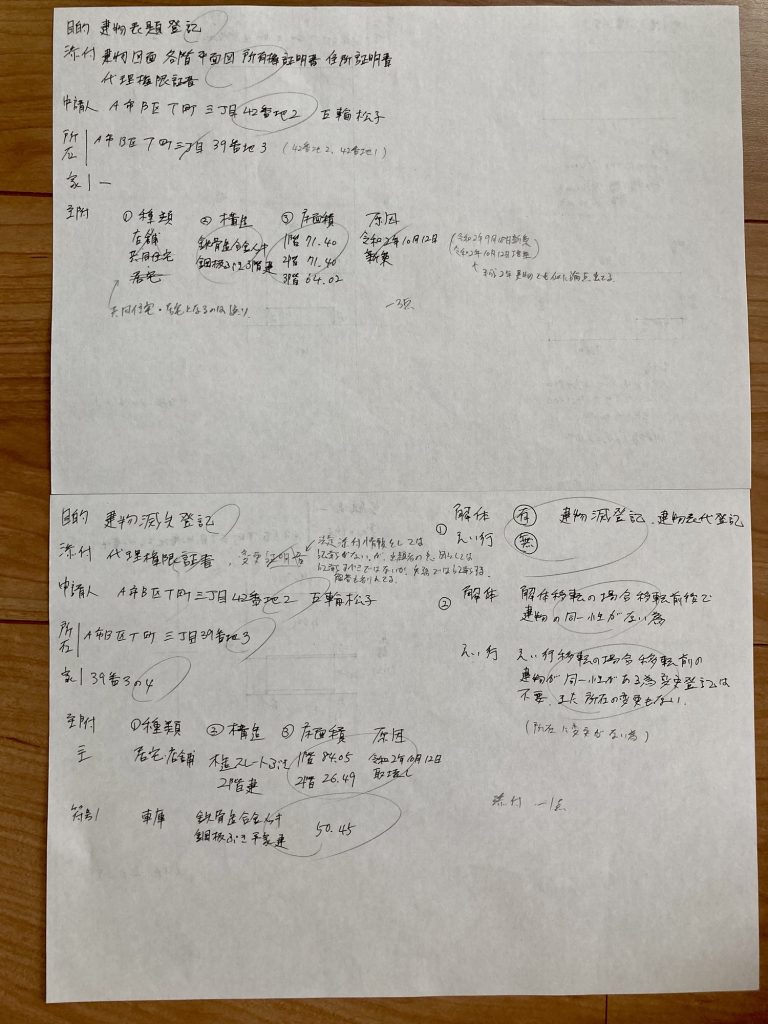 目的 建物表題登記
添付 建物図面 各階平面図 所有権証明書 住所証明書
代理権限証書
申請人 A市B区T町三丁目42番地2 五輪松子
所在 A市B区T町三丁目39番地3 (42番地2、42番地1)
家 一
主附 ①種類 ②構造 ③床面積 原因
店舗 鉄骨造合金メッキ 1階 71.40 令和2年10月12日 (令和2年9月 日新築
共同住宅 鋼板ぶき3階建 2階 71.40 新築 令和2年10月12日 )
居宅 3階 64.02
共同住宅・居宅となるのは誤り
目的 建物滅失登記
添付 代理権限証書、
申請人 A市B区T町三丁目42番地2 五輪松子
所在 A市B区T町三丁目39番地3
家 39番3の4
主附 ①種類 ②構造 ③床面積 原因
主 居宅店舗 木造スレートぶき 1階 84.05 令和2年10月12日
2階建 2階 26.49 取壊し
符号1 車庫 鉄骨造合金メッキ 50.45
鋼板ぶき平家建
① 解体 有 建物滅登記、建物表代登記
えい行 無
② 解体 解体移転の場合移転前後で
建物の同一性がない為
えい行 えい行移転の場合移転前の
建物が同一性がある為変更登記は
不要、また所在の変更もない。
(所在に変更がない為)
添付 一